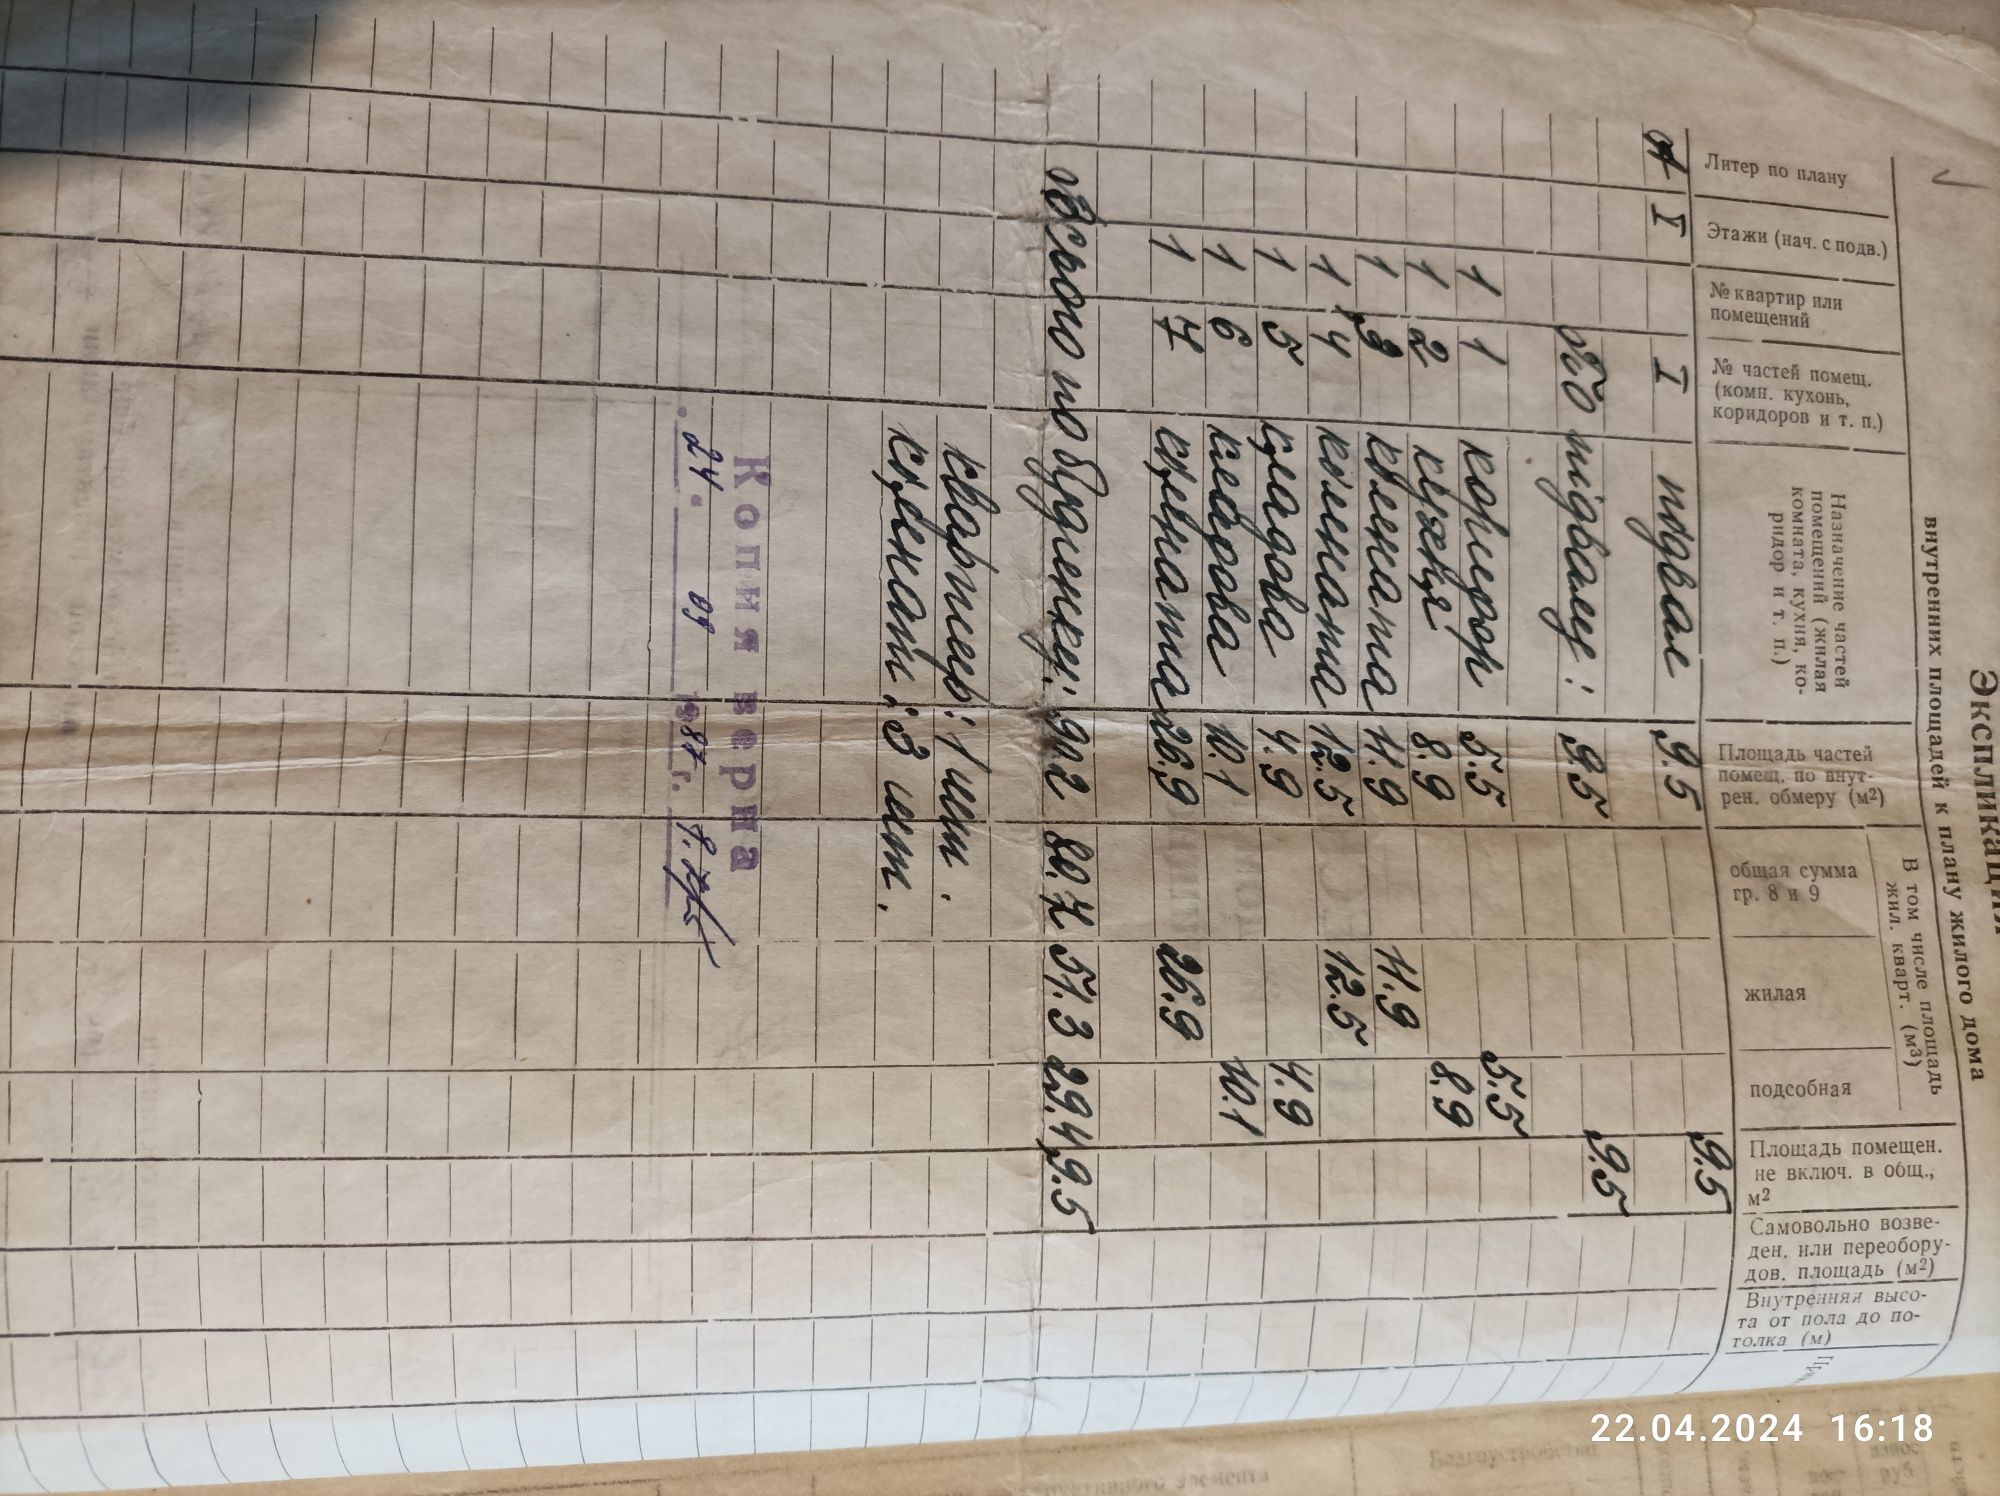 Экспликация
внутренних площадей к плану жилого дома
Литер по плану
Этажи (нач. с подв.)
№ квартир или
помещений
№ частей помещ.
(комн. кухонь,
коридоров и т. п.)
Назначение частей
помещений (жилая
комната, кухня, ко-
ридор и т. п.)
Площадь частей
помещ. по внут-
рен. обмеру (м²)
В том числе площадь
жил. кварт. (м³)
общая сумма
гр. 8 и 9
жилая
подсобная
Площадь помещен.
не включ. в общ.,
м²
Самовольно возве-
ден. или переобору-
дов. площадь (м²)
Внутренняя высо-
та от пола до по-
толка (м)
А I I подвал 9.5 9.5
по підвалу: 9.5 9.5
1 1 коридор 5.5 5.5
1 2 кухня 8.9 8.9
1 3 кімната 11.9 11.9
1 4 кімната 12.5 12.5
1 5 кладова 4.9 4.9
1 6 кладова 10.1 10.1
1 7 кімната 26.9 26.9
Всього по будинку: 90.2 80.7 51.3 29.4 9.5
квартир: 1 шт.
кімнат: 3 шт.
Копия верна
"24" 09 1987 г.
22.04.2024 16:18